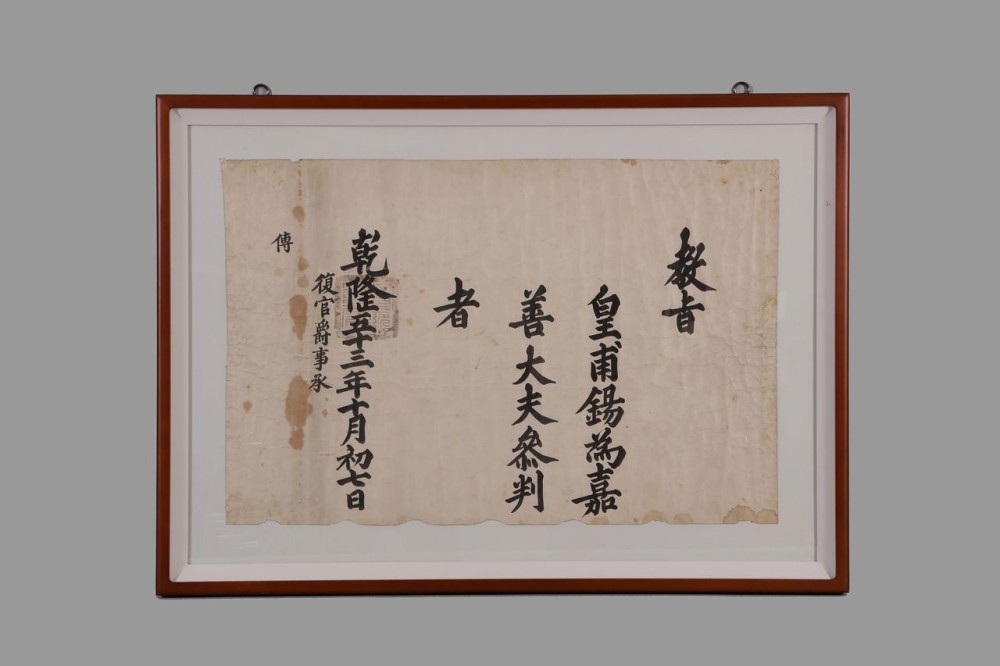 教旨
皇甫鍚為嘉
善大夫叅判
者
乾隆五十三年十月初七日
復官爵事承
傳